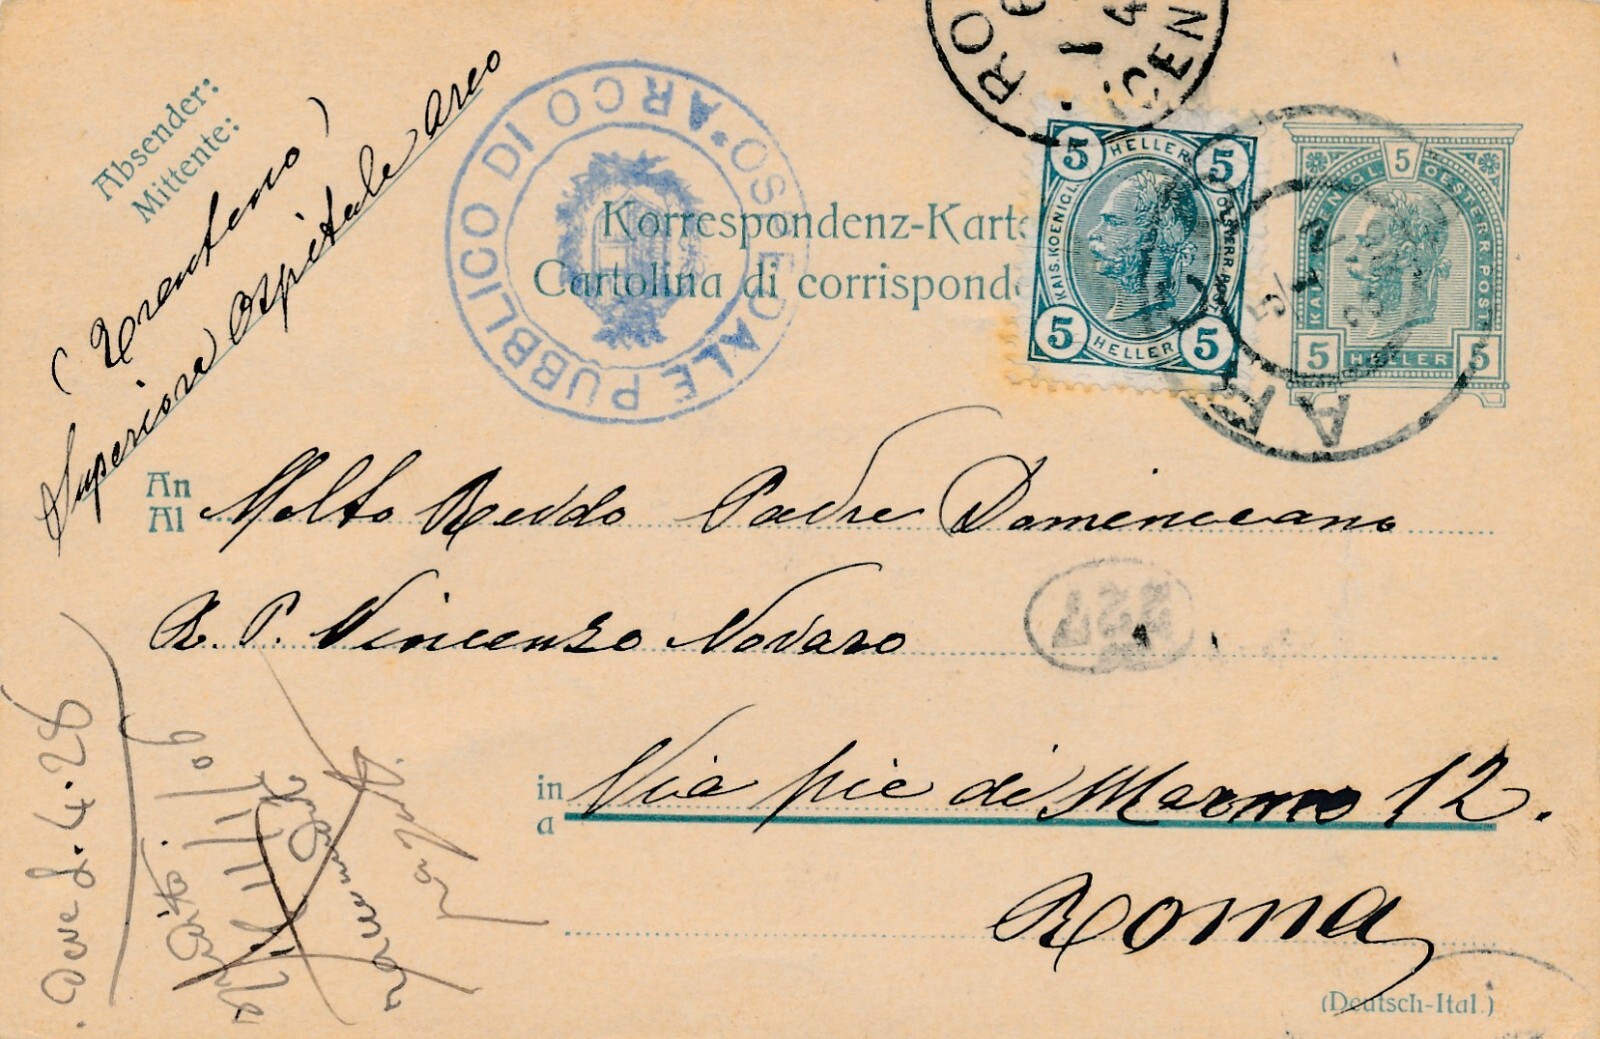 Absender:
Mittente:
(Trentino)
Superiora Ospitale Arco
OSPEDALE PUBBLICO DI ARCO
Korrespondenz-Karte
Cartolina di corrispond
5 HELLER 5
KAIS. KOENIGL. OESTERR. POST
5 HELLER 5
5
KAIS. KOENIGL. OESTERR. POST
5 HELLER 5
An Molto Revdo Padre Domenicano
Al
R. P. Vincenzo Novaro
in Via pie di Marmo 12.
a
Roma
(Deutsch-Ital.)
Deve L. 4.28